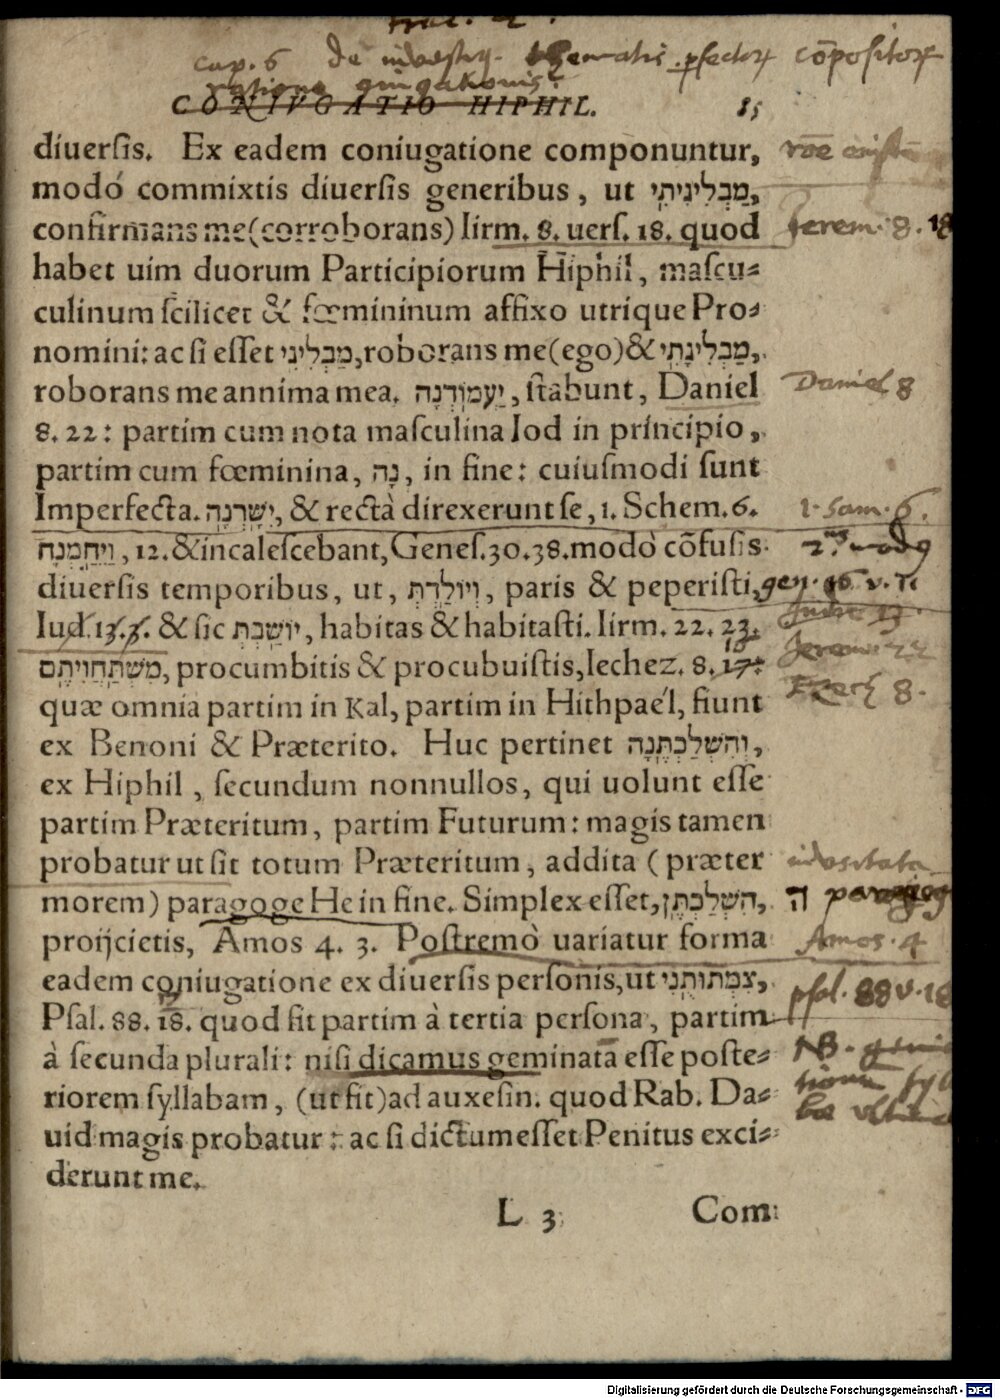 Cap. 6 de investig. thematis
CONIVGATIO HIPHIL. 85
diuerſis. Ex eadem coniugatione componuntur,
modó commixtis diuerſis generibus, ut מַבְלִיגִיתִי,
confirmans me(corroborans) Iirm. 8. uerſ. 18. quod
Jerem. 8. 18
habet uim duorum Participiorum Hiphil, maſcu-
culinum ſcilicet & fœmininum affixo utrique Pro-
nomini: ac ſi eſſet מַבְלִיגִי, roborans me(ego)& מַבְלִיגָתִי,
roborans me annima mea. יַעֲמוֹדְנָה, ſtabunt, Daniel
Daniel 8
8. 22: partim cum nota maſculina Iod in principio,
partim cum fœminina, נָה, in fine: cuiuſmodi ſunt
Imperfecta. יִשַּׁרְנָה, & rectà direxerunt ſe, 1. Schem. 6.
1. Sam. 6.
וַיֵּחַמְנָה, 12. & incaleſcebant, Geneſ. 30. 38. modò cõfuſis
diuerſis temporibus, ut, וְיוֹלַדְתְּ, paris & peperiſti,
gen. 16. v. 11
Iud. 13. 3. & ſic יוֹשַׁבְתְּ, habitas & habitaſti. Iirm. 22. 23.
Judic 13
Jerem: 22
מִשְׁתַּחֲוִיתֶם, procumbitis & procubuiſtis, Iechez. 8. 17:
16
Ezech 8.
quæ omnia partim in Kal, partim in Hithpaél, fiunt
ex Benoni & Præterito. Huc pertinet וְהִשְׁלַכְתֶּנָה,
ex Hiphil, ſecundum nonnullos, qui uolunt eſſe
partim Præteritum, partim Futurum: magis tamen
probatur ut ſit totum Præteritum, addita (præter
inusitata
morem) paragoge He in fine. Simplex eſſet, הִשְׁלַכְתֶּן,
ה paragog
proijcietis, Amos 4. 3. Poſtremò uariatur forma
Amos. 4
eadem coniugatione ex diuerſis perſonis, ut צִמְּתוּתֻנִי,
psal. 88 v. 18
Pſal. 88. 18. quod fit partim à tertia perſona, partim
à ſecunda plurali: niſi dicamus geminata eſſe poſte-
NB.
riorem ſyllabam, (ut fit) ad auxeſin. quod Rab. Da-
uid magis probatur: ac ſi dictum eſſet Penitus exci-
derunt me.
L 3 Com-
Digitalisierung gefördert durch die Deutsche Forschungsgemeinschaft - DFG